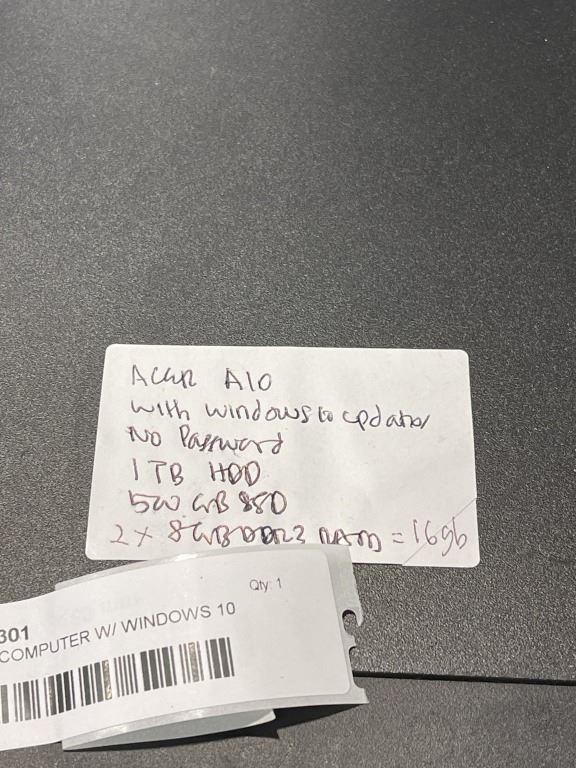 Acer AIO
with windows 10 updated
No Password
1 TB HDD
500 GB SSD
2 x 8GB DDR3 RAM = 16gb
Qty: 1
301
COMPUTER W/ WINDOWS 10